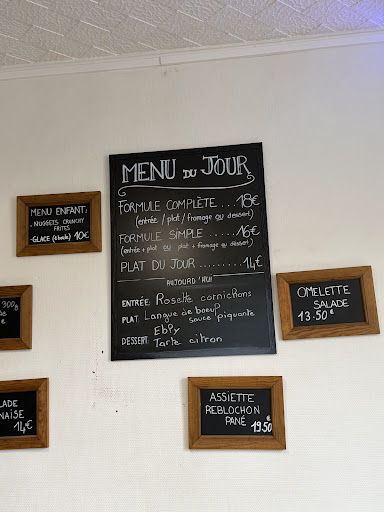 MENU DU JOUR
FORMULE COMPLÈTE .... 18€
(entrée / plat / fromage ou dessert)
FORMULE SIMPLE ..... 16€
(entrée + plat ou plat + fromage ou dessert)
PLAT DU JOUR ........ 14€
AUJOURD'HUI
ENTRÉE: Rosette cornichons
PLAT: Langue de boeuf
sauce piquante
EbPy
DESSERT: Tarte citron
MENU ENFANT:
-NUGGETS CRUNCHY
FRITES
-GLACE (1 boule) 10€
300g
€
LADE
NAISE
14€
OMELETTE
SALADE
13.50€
ASSIETTE
REBLOCHON
PANÉ
19.50